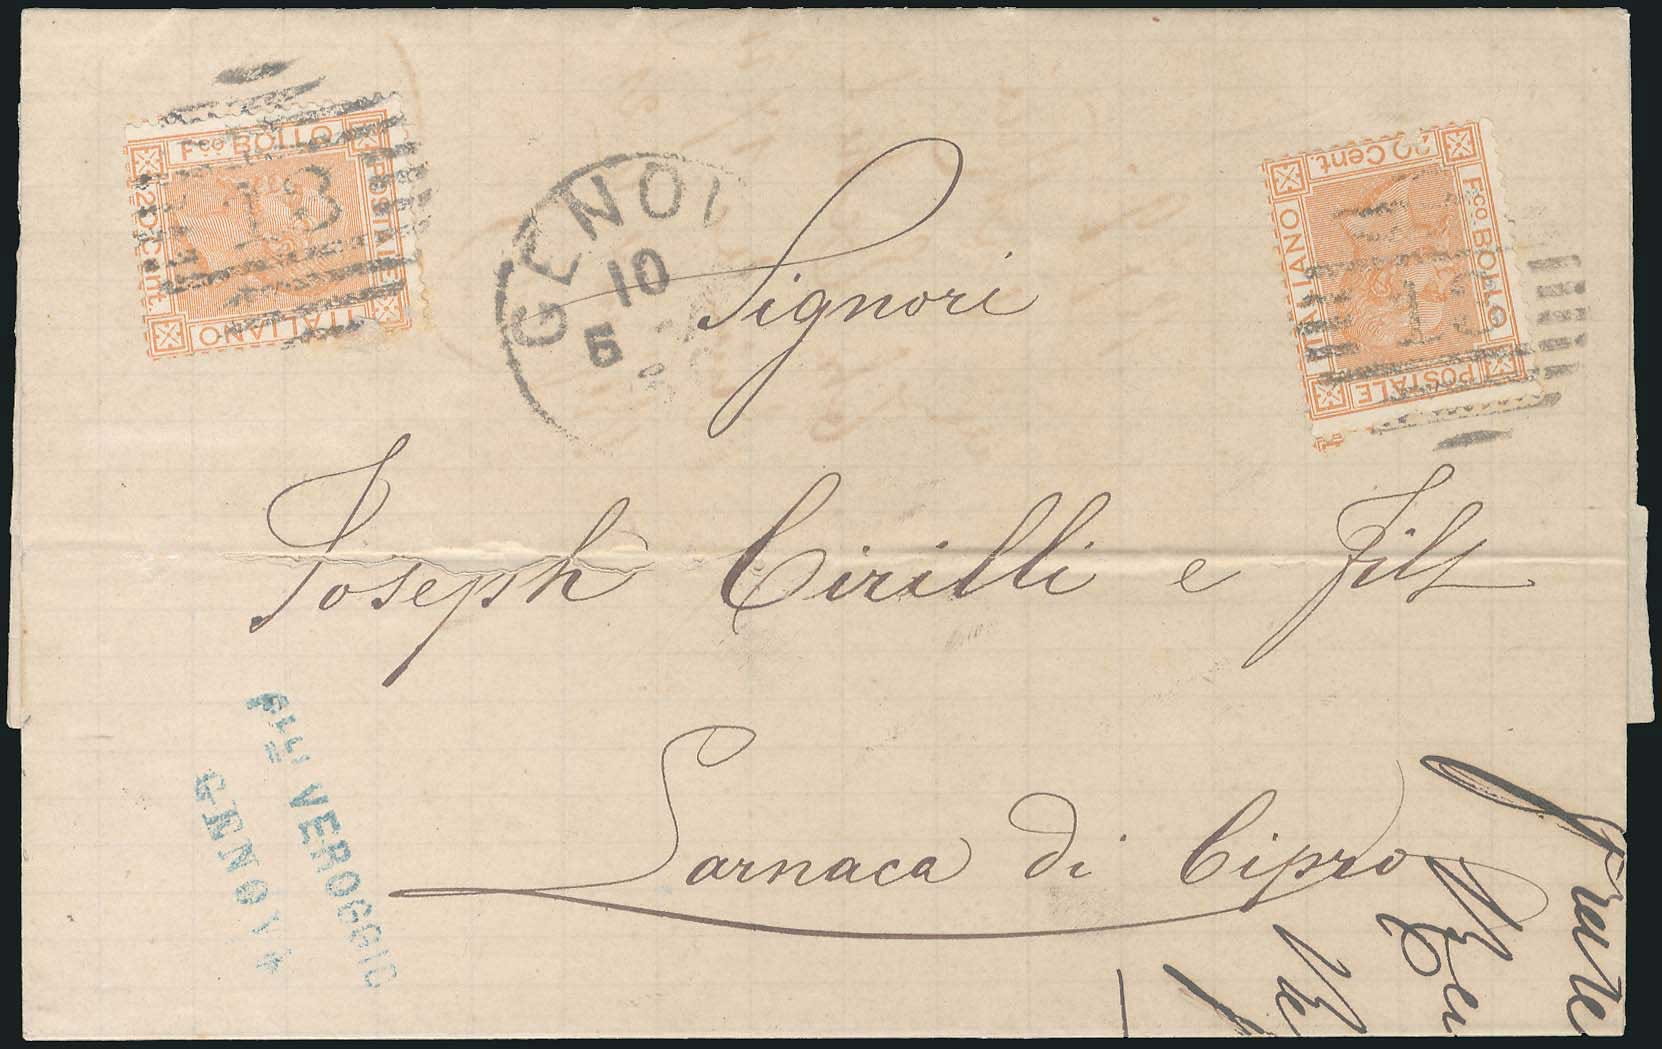 Fco BOLLO
POSTALE
ITALIANO
20 Cent.
13
GENOV
10
5
20 Cent.
Fco BOLLO
POSTALE
ITALIANO
13
Signori
Joseph Cirilli e Fils
Larnaca di Cipro
Flli VEROGGIO
GENOVA